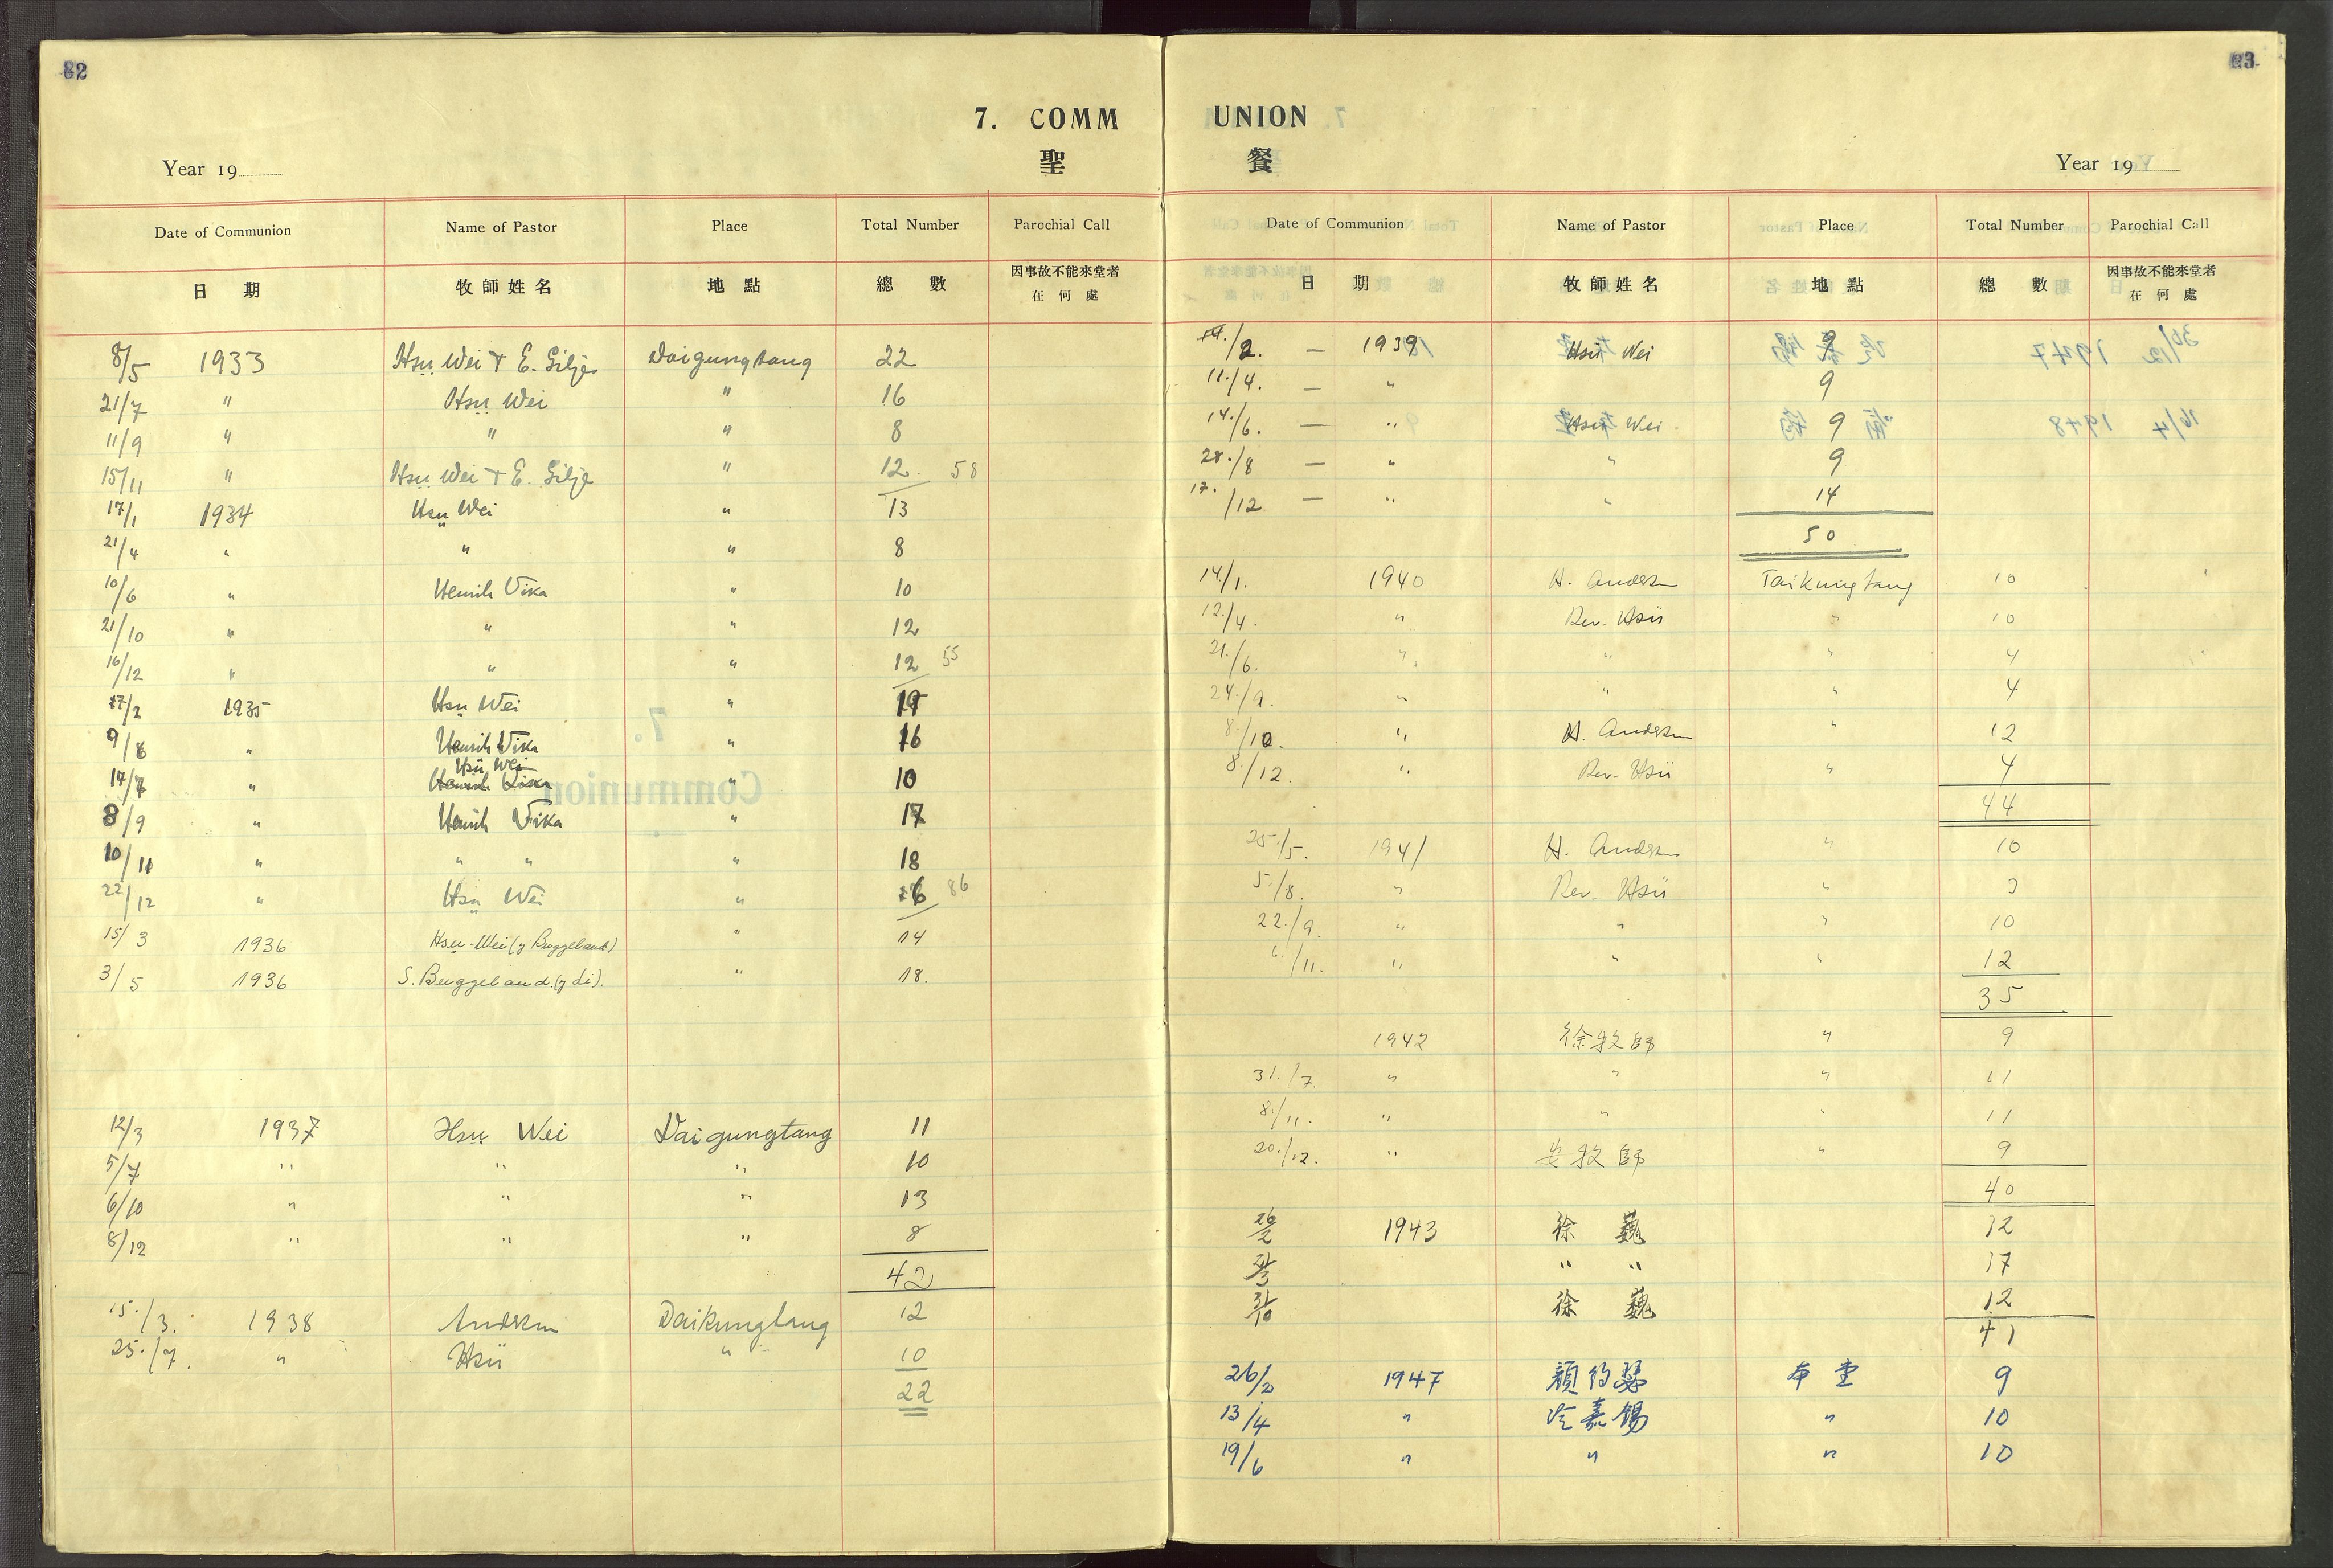 82
7. COMM
聖
Year 19
Date of Communion Name of Pastor Place Total Number Parochial Call
日期 牧師姓名 地點 總數 因事故不能來堂者在何處
8/5 1933 Hsu Wei + E. Gilje Daigungtang 22
21/7 " Hsu Wei " 16
11/9 " " " 8
15/11 " Hsu Wei + E. Gilje " 12 58
17/1 1934 Hsu Wei " 13
21/4 " " " 8
10/6 " Henrik Vika " 10
21/10 " " " 12
16/12 " " " 12 55
17/2 1935 Hsu Wei " 19
9/6 " Henrik Vika " 16
Hsü Wei
14/7 " Henrik Vika " 10
8/9 " Henrik Vika " 17
10/11 " " " " 18
22/12 " Hsu Wei " 6 86
15/3 1936 Hsu-Wei (y Buggeland) " 14
3/5 1936 S. Buggeland (y di). " 18.
12/3 1937 Hsu Wei Daigungtang 11
5/7 " " " 10
6/10 " " " 13
8/12 " " " 8
42
15./3. 1938 Andersen Daikungtang 12
25./7. " Hsü " 10
22
83
UNION
餐
Year 19
Date of Communion Name of Pastor Place Total Number Parochial Call
日期 牧師姓名 地點 總數 因事故不能來堂者在何處
/2. — 1939 Hsü Wei 9
11./4. — " 9
14./6. — " Hsü Wei 9
28./8 — " " 9
17./12 — " " 14
50
14./1. 1940 H. Andersen Taikungtang 10
12./4. " Rev. Hsü " 10
21./6. " " " 4
24./9. " " " 4
8/10. " H. Andersen " 12
8./12. " Rev. Hsü " 4
44
25./5. 1941 H. Andersen " 10
5./8. " Rev. Hsü " 3
22./9. " " " 10
6./11. " " " 12
35
1942 徐牧師 " 9
31./7. " " " 11
8./11. " " " 11
20./12. " 安牧師 " 9
40
26/2 1943 徐巍 12
" " 17
徐巍 12
41
26/2 1947 顏約瑟 本堂 9
13/4 " 嘉錫 " 10
19/6 " " " 10